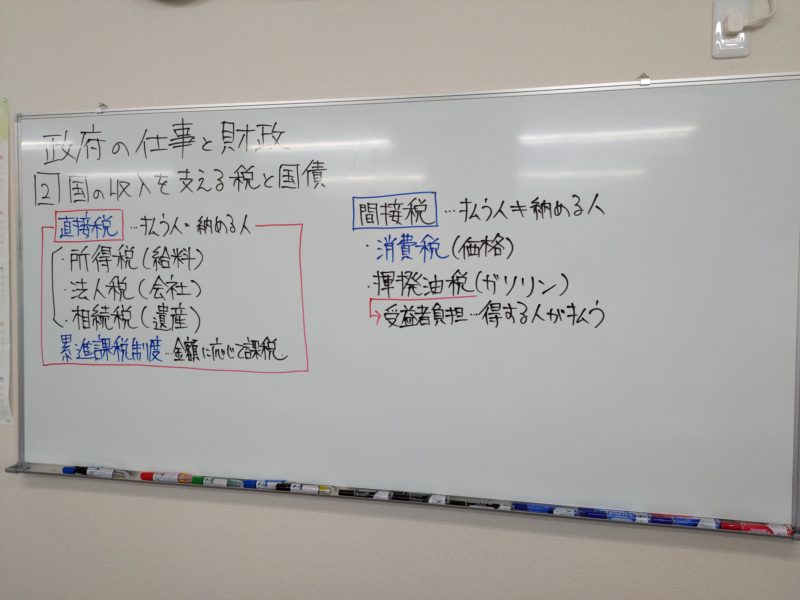 政府の仕事と財政
2 国の収入を支える税と国債
直接税 …払う人=納める人
・所得税(給料)
・法人税(会社)
・相続税(遺産)
累進課税制度…金額に応じて課税
間接税 …払う人≠納める人
・消費税(価格)
・揮発油税(ガソリン)
→受益者負担…得する人が払う